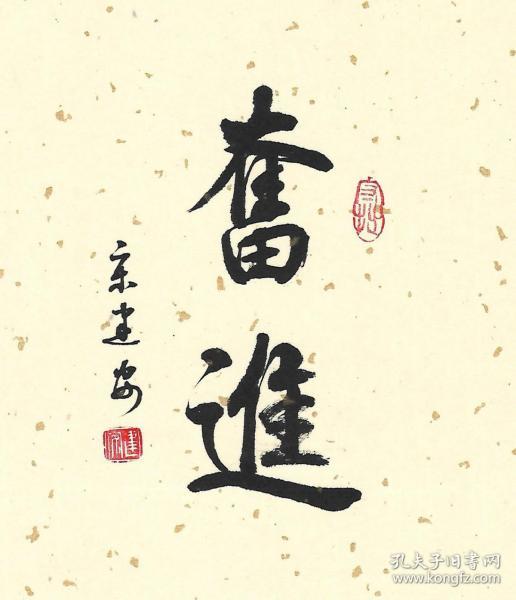 奮進
京建安
孔夫子旧书网
www.kongfz.com